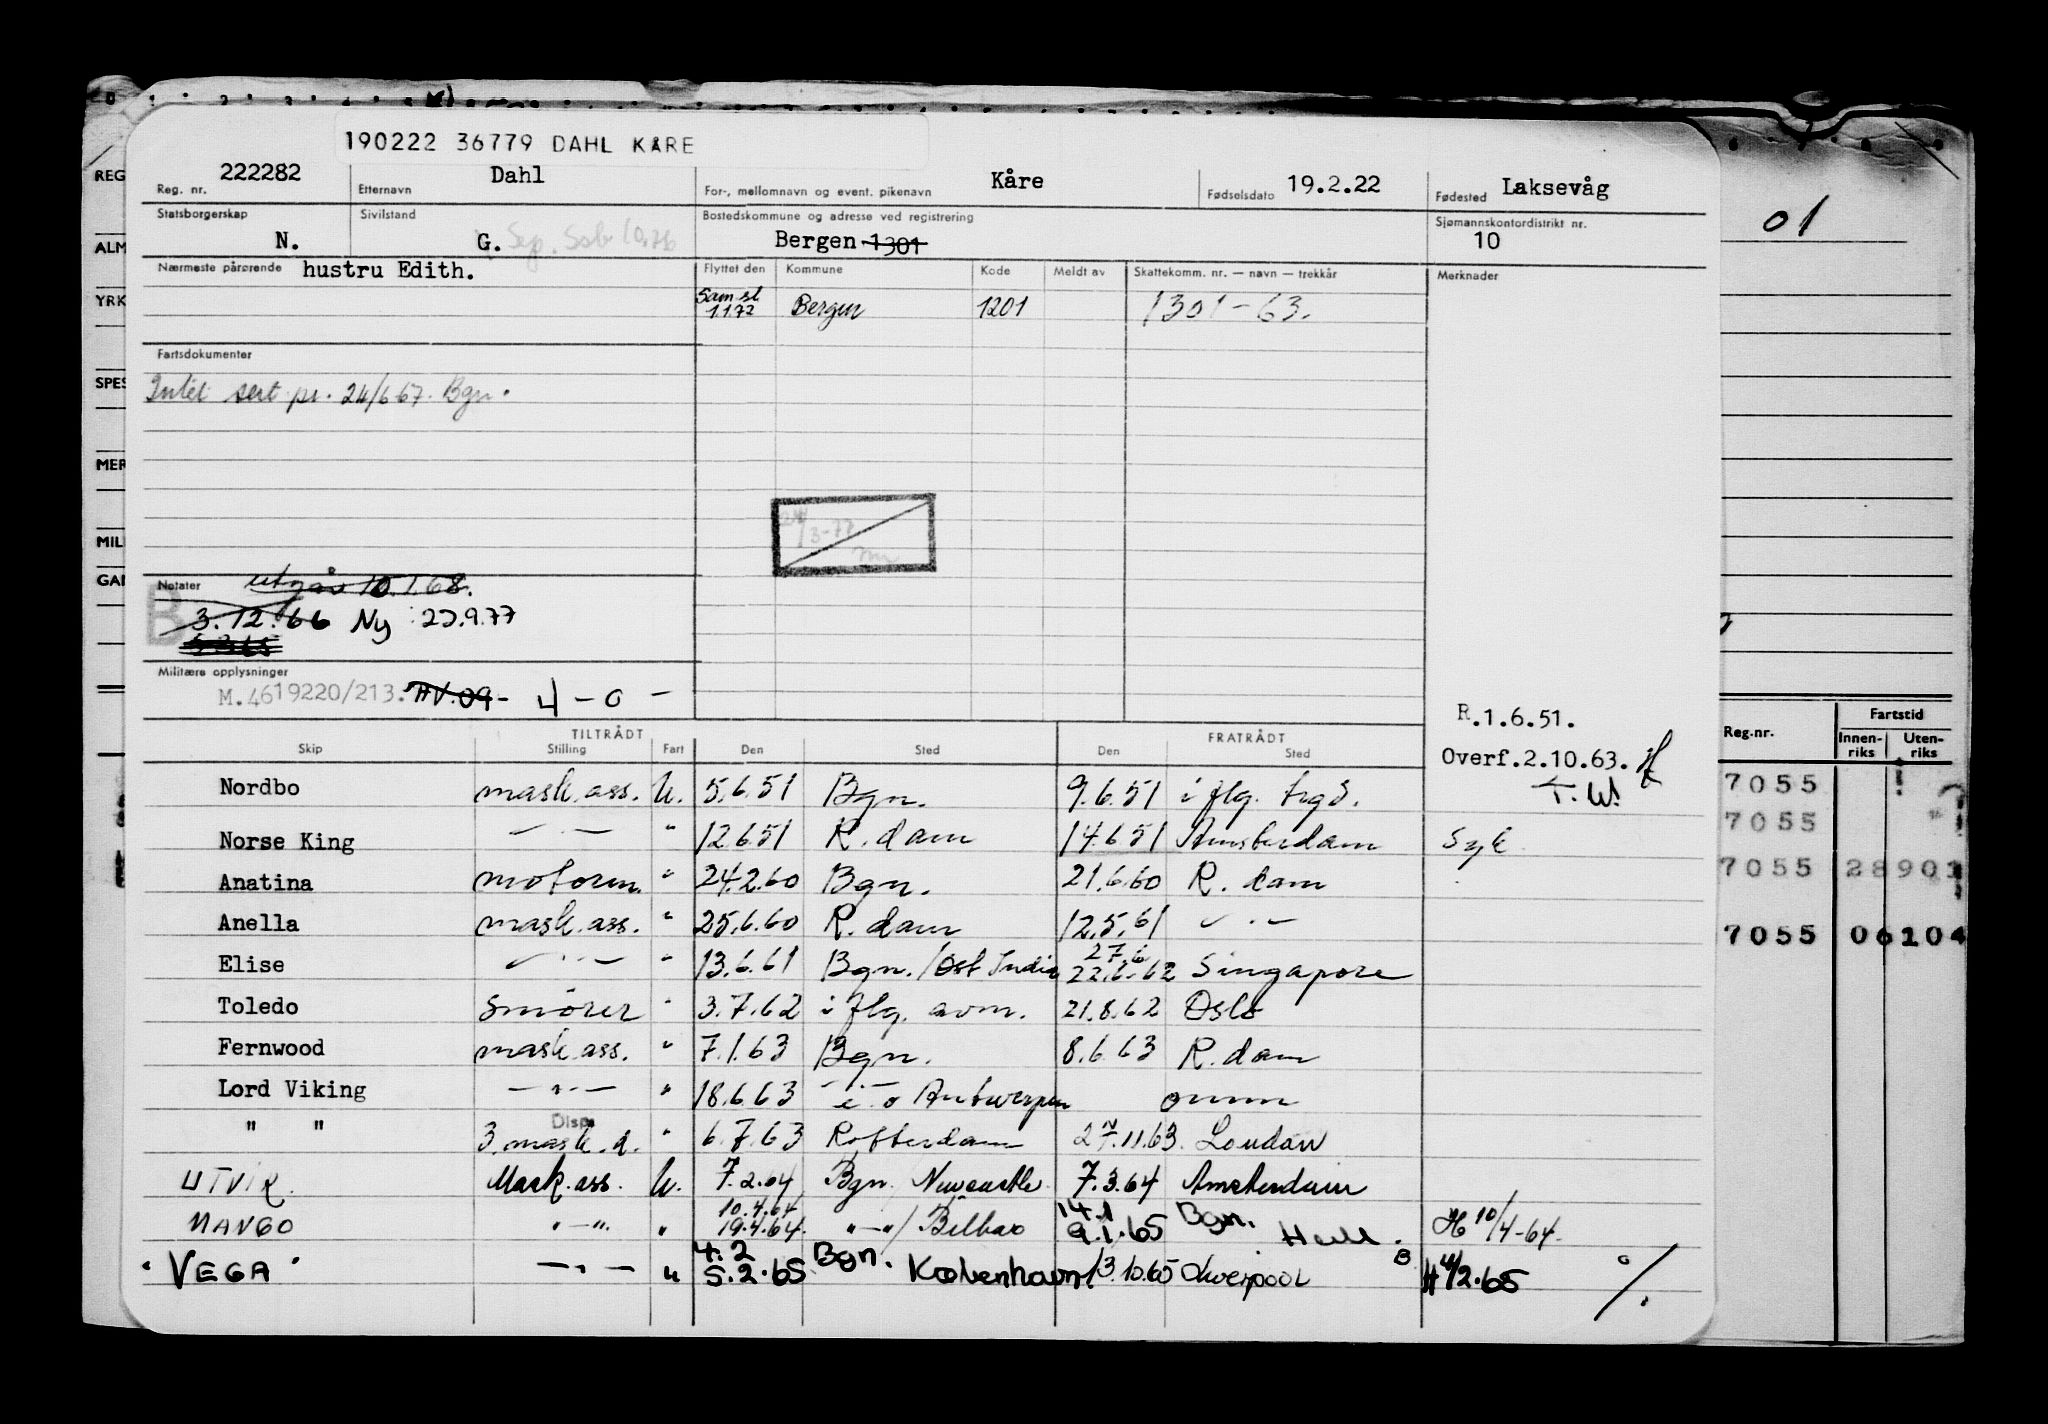 190222 36779 DAHL KÅRE
Reg. nr. 222282 Etternavn Dahl For-, mellomnavn og event. pikenavn Kåre Fødselsdato 19.2.22 Fødested Laksevåg
Statsborgerskap N. Sivilstand G. Bostedskommune og adresse ved registrering Bergen 1301 Sjømannskontordistrikt nr. 10
01
Nærmeste pårørende hustru Edith. Flyttet den Kommune Kode Meldt av Skattekomm. nr. — navn — trekkår Merknader
1.1.72 Bergen 1201 1301-63.
Fartsdokumenter
sert pr. 24/6 67. Bgn.
Notater utgår 10.1.68.
3.12.66 Ny
Militære opplysninger
M.4619220/213. HV.09- 4-0-
R.1.6.51.
Overf.2.10.63.
T.W.
TILTRÅDT FRATRÅDT
Skip Stilling Fart Den Sted Den Sted
Reg.nr. Fartstid
Innen-riks Uten-riks
Nordbo mask.ass. U. 5.6.51 Bgn. 9.6.51 i flg. trgd. 7055
Norse King — " — " 12.6.51 R.dam 14.6.51 Amsterdam Syk 7055
Anatina motorm. " 24.2.60 Bgn. 21.6.60 R.dam 7055 28901
Anella mask.ass. " 25.6.60 R.dam 12.5.61 — " — 7055 06104
Elise — " — " 13.6.61 Bgn./Øst India 27.6 22.6.62 Singapore
Toledo Smører " 3.7.62 i flg. avm. 21.8.62 Oslo
Fernwood mask.ass. " 7.1.63 Bgn. 8.6.63 R.dam
Lord Viking — " — " 18.6.63 — " — Antwerpen omm
" " Disp. 3. mask. d. " 6.7.63 Rotterdam 27.11.63. London
UTVIK. Mask.ass. U. 7.2.64 Bgn./Newcastle. 7.3.64 Amsterdam
MANGO " — " " 10.4.64 19.4.64 " — " / Bilbao 14.1 9.1.65 Bgn. Hull. H 10/4-64.
"VEGA" — " — " 4.2 5.2.65 Bgn. København. 13.10.65 Liverpool B H 4/2.65 %
REG
ALM
YRK
SPES
MER
MIL
GAI